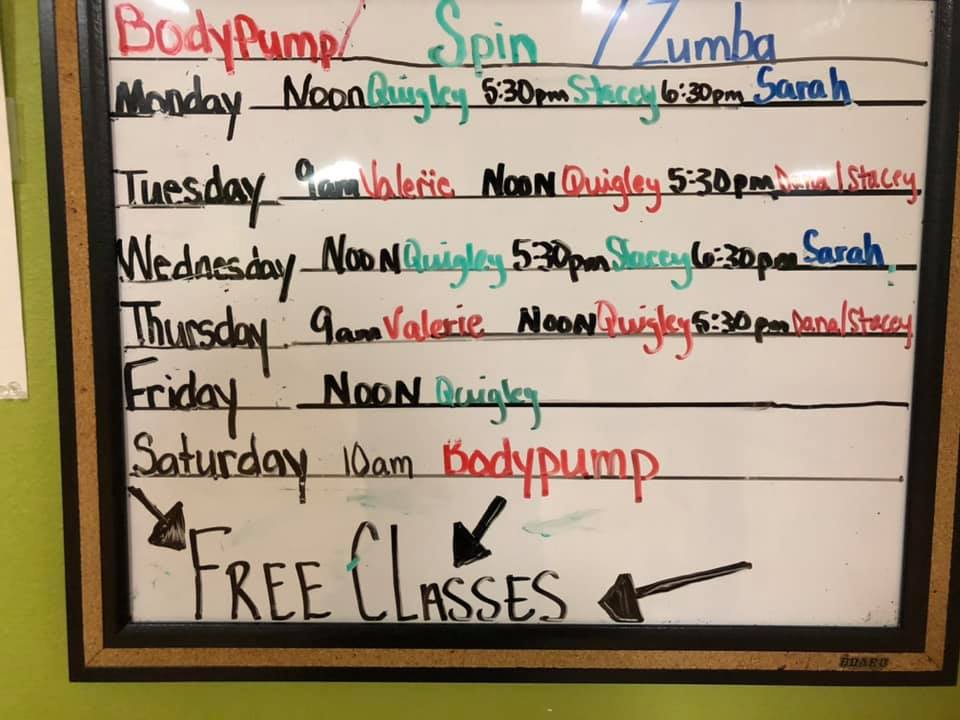 BodyPump/ Spin /Zumba
Monday Noon Quigley 5:30pm Stacey 6:30pm Sarah
Tuesday 9am Valerie Noon Quigley 5:30pm Dana/Stacey
Wednesday Noon Quigley 5:30pm Stacey 6:30pm Sarah
Thursday 9am Valerie Noon Quigley 5:30pm Dana/Stacey
Friday Noon Quigley
Saturday 10am Bodypump
FREE CLASSES
BOARD